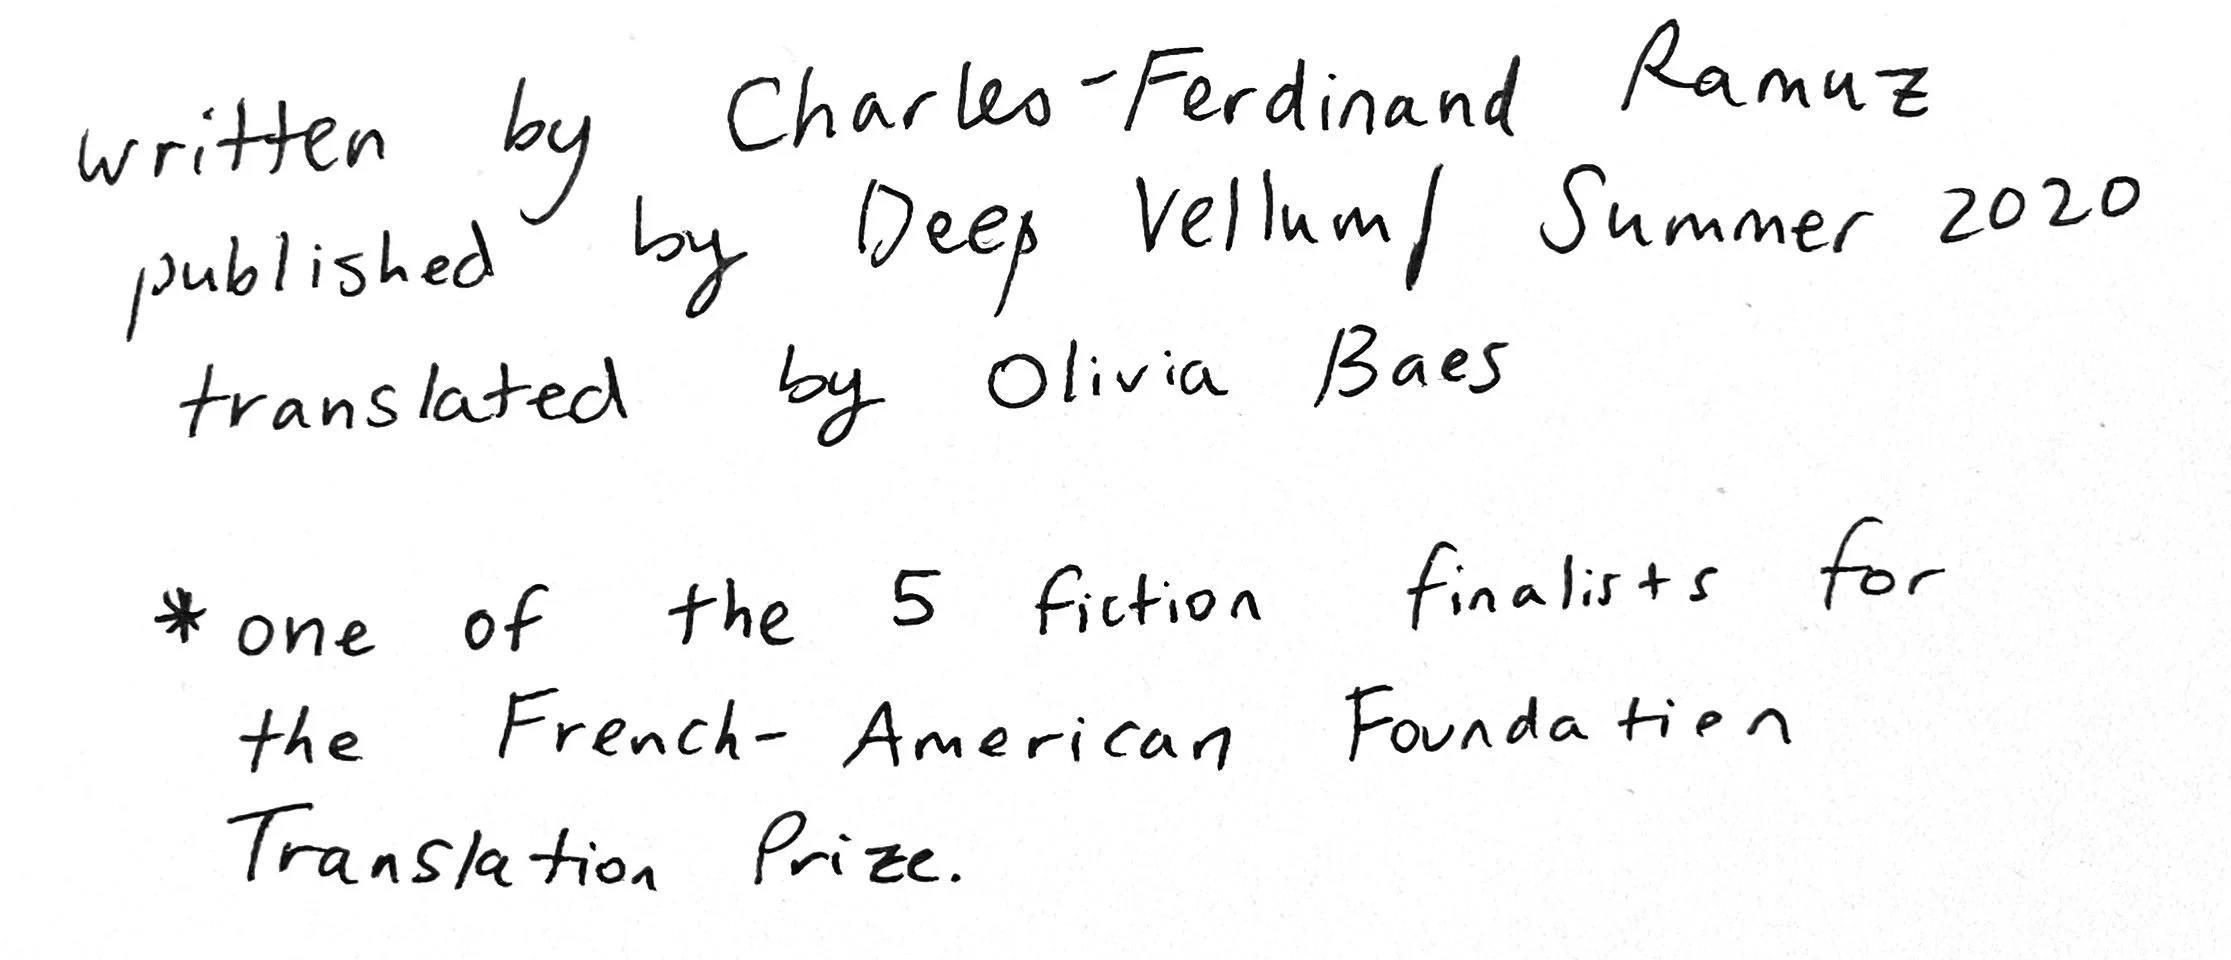 written by Charles-Ferdinand Ramuz
published by Deep Vellum/ Summer 2020
translated by Olivia Baes
* one of the 5 fiction finalists for
the French-American Foundation
Translation Prize.